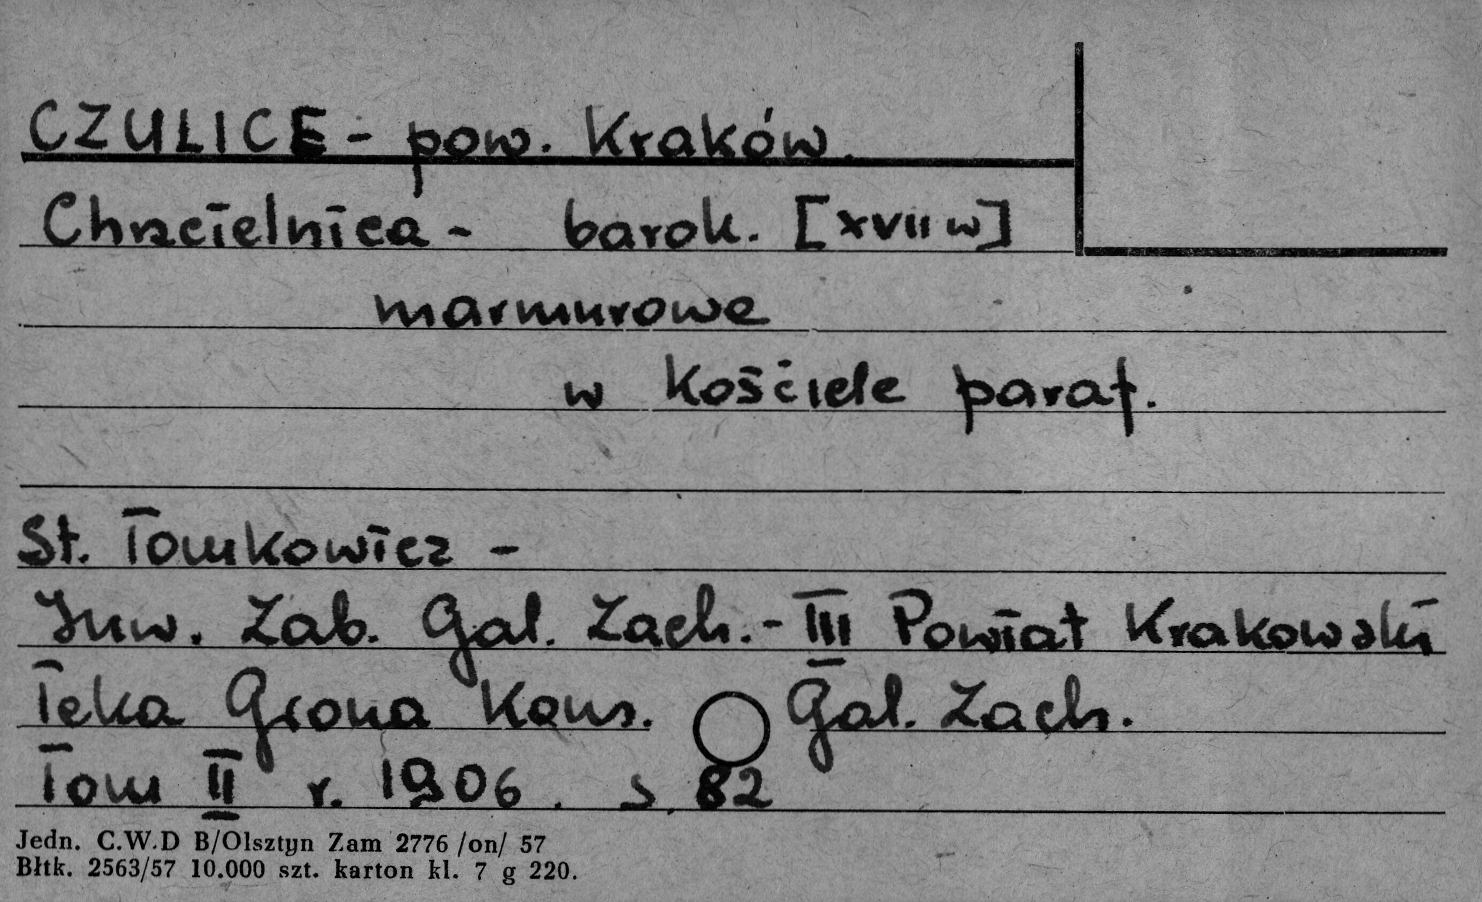 CZULICE - pow. Kraków.
Chrzcielnica - barok. [XVII w]
marmurowe
w kościele paraf.
St. Tomkowicz -
Inw. Zab. Gal. Zach. - III Powiat Krakowski
Teka Grona Kons. Gal. Zach.
Tom II r. 1906. s. 82
Jedn. C.W.D B/Olsztyn Zam 2776 /on/ 57
Błtk. 2563/57 10.000 szt. karton kl. 7 g 220.